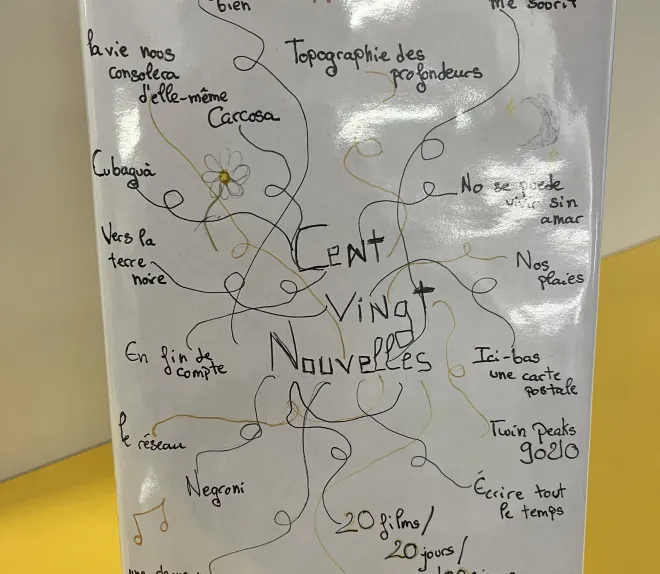 bien
me sourit
la vie nous
consolera
d'elle-même
Topographie des
profondeurs
Carcosa
Cubaguà
No se puede
vivir sin
amar
Vers la
terre
noire
Cent
Vingt
Nouvelles
Nos
plaies
En fin de
compte
Ici-bas
une carte
postale
le réseau
Twin Peaks
90210
Negroni
Écrire tout
le temps
20 films/
20 jours/